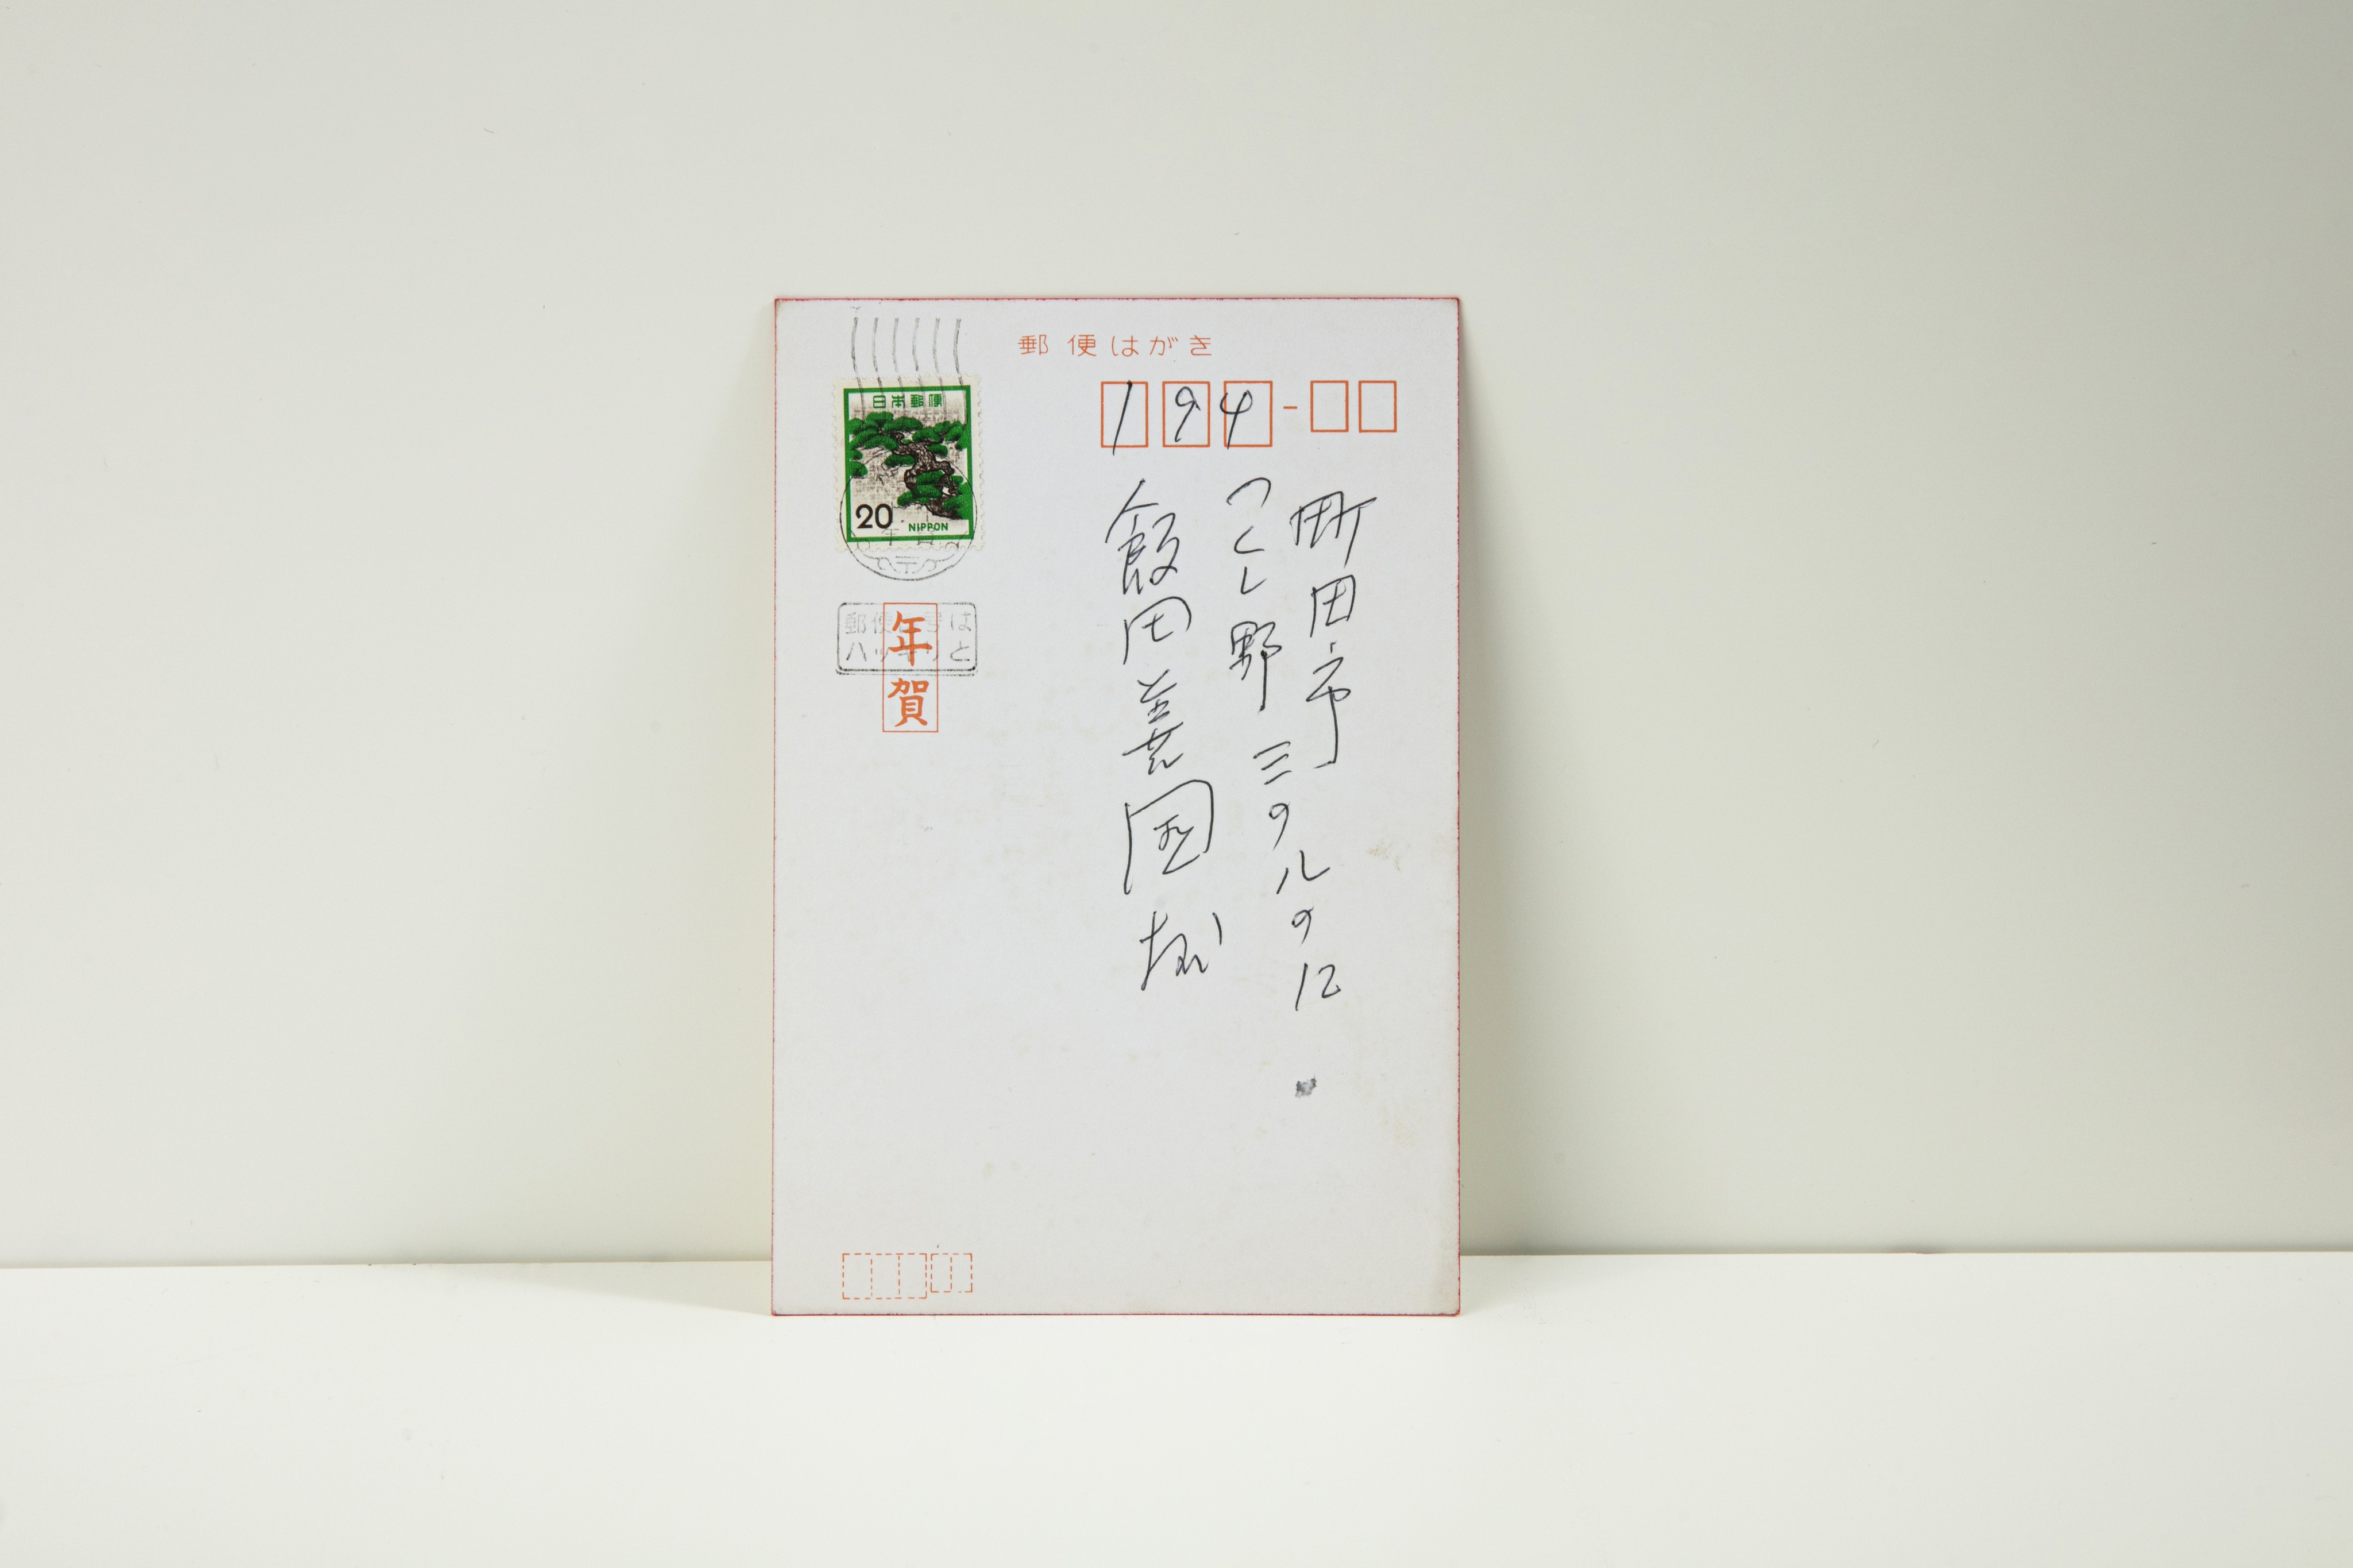 郵便はがき
194
日本郵便
20 NIPPON
郵便番号は
ハッキリと
年賀
町田市
つくし野 三のルの12
飯田善国様